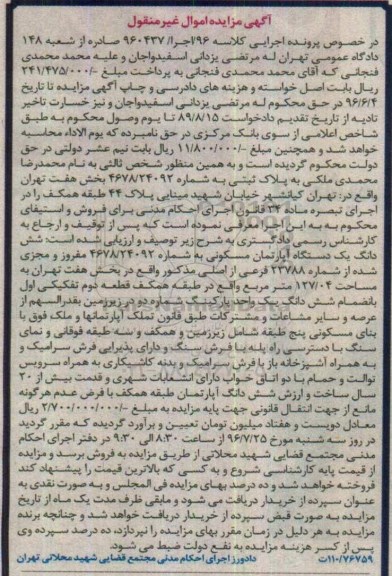 آگهی مزایده اموال غیر منقول
در خصوص پرونده اجرایی کلاسه ۹۶/اجرا/ ۹۶۰۴۳۷ صادره از شعبه ۱۴۸
دادگاه عمومی تهران له مرتضی یزدانی اسفیدواجان و علیه محمد محمدی
فنجانی که آقای محمد محمدی فنجانی به پرداخت مبلغ -/۲۴۱/۴۷۵/۰۰۰
ریال بابت اصل خواسته و هزینه های دادرسی و چاپ آگهی مزایده تا تاریخ
۹۶/۶/۴ در حق محکوم له مرتضی یزدانی اسفیدواجان و نیز خسارت تاخیر
تادیه از تاریخ تقدیم دادخواست ۸۹/۸/۱۵ تا یوم وصول محکوم به طبق
شاخص اعلامی از سوی بانک مرکزی در حق نامبرده که یوم الاداء محاسبه
خواهد شد و همچنین مبلغ -/۱۱/۸۰۰/۰۰۰ ریال بابت نیم عشر دولتی در حق
دولت محکوم گردیده است و به همین منظور شخص ثالثی به نام محمدرضا
محمدی ملکی به پلاک ثبتی به شماره ۴۶۷۸/۲۴۰۹۲ بخش هفت تهران
واقع در: تهران کیانشهر خیابان شهید مینایی پلاک ۴۴ طبقه همکف را در
اجرای تبصره ماده ۳۴ قانون اجرای احکام مدنی برای فروش و استیفای
محکوم به به این اجرا معرفی نموده است که پس از توقیف و ارجاع به
کارشناس رسمی دادگستری به شرح زیر توصیف و ارزیابی شده است: شش
دانگ یک دستگاه آپارتمان مسکونی به شماره ۴۶۷۸/۲۴۰۹۲ مفروز و مجزی
شده از شماره ۲۳۷۸۸ فرعی از اصلی مذکور واقع در بخش هفت تهران به
مساحت ۱۲۷/۰۴ متر مربع واقع در طبقه همکف قطعه دوم تفکیکی اول
بانضمام شش دانگ یک واحد پارکینگ شماره دو در زیرزمین بقدرالسهم از
عرصه و سایر مشاعات و مشترکات طبق قانون تملک آپارتمانها و ملک فوق با
بنای مسکونی پنج طبقه شامل زیرزمین و همکف و سه طبقه فوقانی و نمای
سنگ با دسترسی راه پله با فرش سنگ و دارای پذیرایی فرش سرامیک و
به همراه آشپزخانه باز با فرش سرامیک و بدنه کاشیکاری به همراه سرویس
توالت و حمام با دو اتاق خواب دارای انشعابات شهری و قدمت بیش از ۲۰
سال ساخت و ارزش شش دانگ آپارتمان طبقه همکف با فرض عدم هرگونه
مانع از جهت انتقال قانونی جهت پایه مزایده به مبلغ -/۲/۷۰۰/۰۰۰/۰۰۰ ریال
معادل دویست و هفتاد میلیون تومان تعیین و برآورد گردیده که مقرر گردید
در روز سه شنبه مورخ ۹۶/۷/۲۵ از ساعت ۸:۳۰ الی ۹:۳۰ در دفتر اجرای احکام
مدنی مجتمع قضایی شهید محلاتی از طریق مزایده به فروش برسد و مزایده
از قیمت پایه کارشناسی شروع و به کسی که بالاترین قیمت را پیشنهاد کند
فروخته خواهد شد و ده درصد بهای مزایده فی المجلس و به صورت نقدی به
عنوان سپرده از خریدار دریافت می شود و مابقی ظرف مدت یک ماه از تاریخ
مزایده به صورت قبض سپرده از خریدار دریافت خواهد شد و چنانچه برنده
مزایده به هر دلیل در زمان مقرر بهای مزایده را نپردازد، ده درصد سپرده وی
پس از کسر هزینه مزایده به نفع دولت ضبط می شود.
۱۱۰/۷۶۷۵۹ت دادورز اجرای احکام مدنی مجتمع قضایی شهید محلاتی تهران